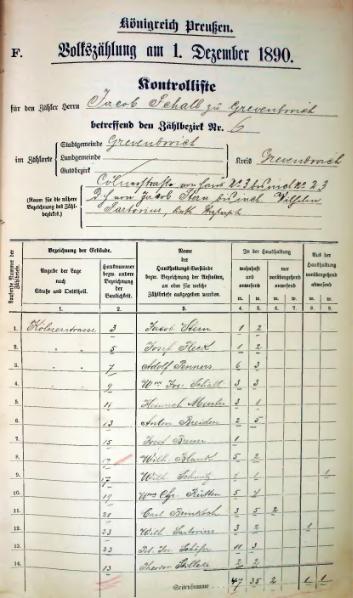 Königreich Preußen.
F. Volkszählung am 1. Dezember 1890.
Kontrolliste
für den Zähler Herrn Jacob Schall zu Grevenbroich
betreffend den Zählbezirk Nr. 6
im Zählorte
Stadtgemeinde Grevenbroich
Landgemeinde
Gutsbezirk
Kreis Grevenbroich
(Name für die nähere Bezeichnung des Zählbezirkes.)
Cölnerstraße von Haus No 3 bis incl No 23
d. h. von Jacob Stern bis incl Wilhelm
Sartorius,
Laufende Nummer der Zählbriefe
Bezeichnung der Gebäude.
Angabe der Lage nach Straße und Ortstheil.
Hausnummer bezw. andere Bezeichnung der Baulichkeit.
Name der Haushaltungs-Vorstände bezw. Bezeichnung der Anstalten, an oder für welche Zählbriefe ausgegeben wurden.
In der Haushaltung
wohnhaft und anwesend
nur vorübergehend anwesend
Aus der Haushaltung vorübergehend abwesend
m. w. m. w. m. w.
1. 2. 3. 4. 5. 6. 7. 8. 9.
1. Kölnerstrasse 3 Jacob Stern 1 2
2. " " 5 Josef Heck 1 2
3. " " 7 Adolf Penners 6 3
4. " " 9 Wm Jos. Schall 3 3
5. 11 Heinrich 3 1
6. 13 Anton 2 5
7. 15 Josef 1
8. Wilh. Blank 5 2
9. 17 Wilh. 1
10. 19 Wwe Chr. Rütten 5
11. 21 Carl 3 5 2
12. 23 Wilh Sartorius 3 2 1
13. 23 Pet. Jos. Schäfer 11 3
14. Theodor 2 2
Seitensumme 47 35 2 1 1